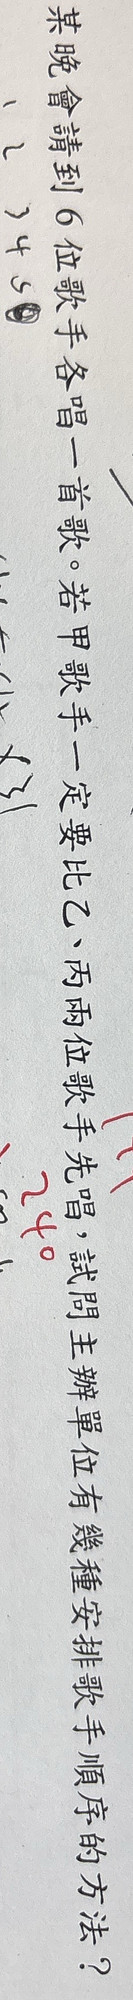 某晚會請到6位歌手各唱一首歌。若甲歌手一定要比乙、丙兩位歌手先唱，試問主辦單位有幾種安排歌手順序的方法？
240